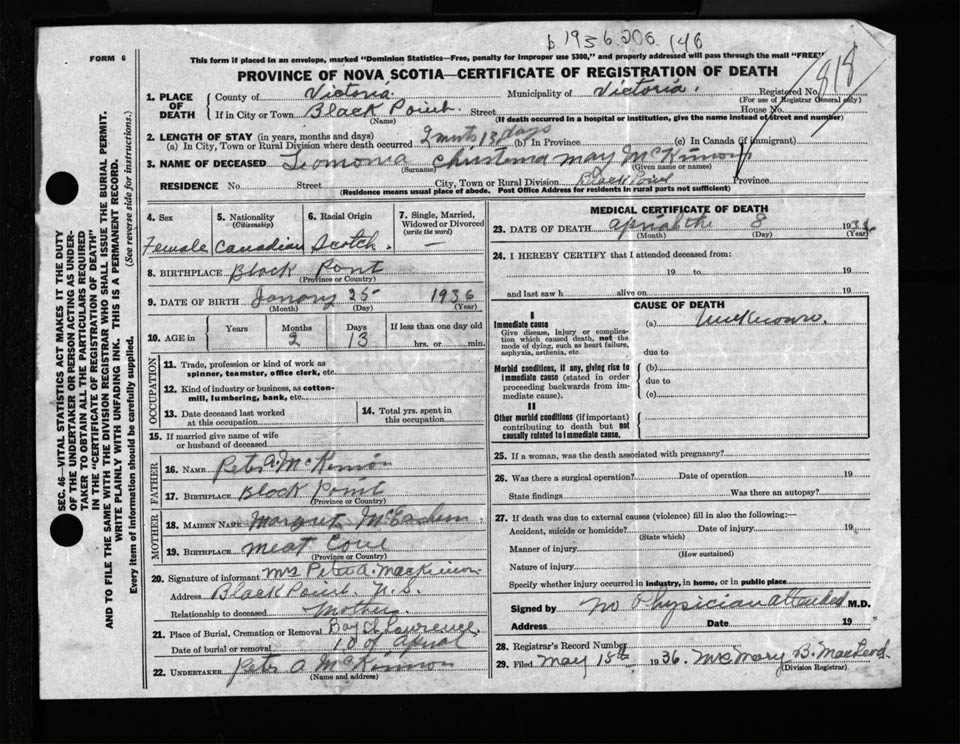 1936.206.146
818
FORM 6
This form if placed in an envelope, marked "Dominion Statistics—Free, penalty for improper use $300," and properly addressed will pass through the mail "FREE"
PROVINCE OF NOVA SCOTIA—CERTIFICATE OF REGISTRATION OF DEATH
1. PLACE OF DEATH
County of Victoria. Municipality of Victoria. Registered No.
(For use of Registrar General only)
If in City or Town Black Point. Street House No.
(Name) (If death occurred in a hospital or institution, give the name instead of street and number)
2. LENGTH OF STAY (in years, months and days)
(a) In City, Town or Rural Division where death occurred 2 mnts 13 days (b) In Province (c) In Canada (if immigrant)
3. NAME OF DECEASED Christena may McKinnon
(Surname) (Given name or names)
RESIDENCE No Street City, Town or Rural Division Black Point Province
(Residence means usual place of abode. Post Office Address for residents in rural parts not sufficient)
4. Sex
Female
5. Nationality
(Citizenship)
Canadian
6. Racial Origin
Scotch.
7. Single, Married, Widowed or Divorced
(write the word)
—
8. BIRTHPLACE Black Pont
(Province or Country)
9. DATE OF BIRTH Janary 25 1936
(Month) (Day) (Year)
10. AGE in
Years Months Days If less than one day old
2 13 hrs. or min.
OCCUPATION
11. Trade, profession or kind of work as
spinner, teamster, office clerk, etc.
12. Kind of industry or business, as cotton-
mill, lumbering, bank, etc.
13. Date deceased last worked
at this occupation
14. Total yrs. spent in
this occupation
15. If married give name of wife
or husband of deceased
FATHER
16. NAME Peter A. McKinnon
17. BIRTHPLACE Black Point
(Province or Country)
MOTHER
18. MAIDEN NAME Margret McEachern.
19. BIRTHPLACE meat Cove
(Province or Country)
20. Signature of informant Mrs Peter A. MacKinnon.
Address Black Point. N.S.
Relationship to deceased Mother.
21. Place of Burial, Cremation or Removal Bay St Lawrence.
Date of burial or removal 10 of Aprial
22. UNDERTAKER Peter A McKinnon
(Name and address)
MEDICAL CERTIFICATE OF DEATH
23. DATE OF DEATH aprial the 8 1936
(Month) (Day) (Year)
24. I HEREBY CERTIFY that I attended deceased from:
19 to 19
and last saw h alive on 19
CAUSE OF DEATH
I
Immediate cause
Give disease, injury or complica-
tion which caused death, not the
mode of dying, such as heart failure,
asphyxia, asthenia, etc.
(a) Unknown.
due to
Morbid conditions, if any, giving rise to
immediate cause (stated in order
proceeding backwards from im-
mediate cause).
(b)
due to
(c)
II
Other morbid conditions (if important)
contributing to death but not
causally related to immediate cause.
25. If a woman, was the death associated with pregnancy?
26. Was there a surgical operation? Date of operation 19
State findings Was there an autopsy?
27. If death was due to external causes (violence) fill in also the following:—
Accident, suicide or homicide? Date of injury 19
(State which)
Manner of injury
(How sustained)
Nature of injury
Specify whether injury occurred in industry, in home, or in public place
Signed by no Physician attended M.D.
Address Date 19
28. Registrar's Record Number
29. Filed May 15th 1936. Mrs Mary B. MacLeod.
(Division Registrar)
SEC. 46—VITAL STATISTICS ACT MAKES IT THE DUTY
OF THE UNDERTAKER OR PERSON ACTING AS UNDER-
TAKER TO OBTAIN ALL THE PARTICULARS REQUIRED
IN THE "CERTIFICATE OF REGISTRATION OF DEATH"
AND TO FILE THE SAME WITH THE DIVISION REGISTRAR WHO SHALL ISSUE THE BURIAL PERMIT.
WRITE PLAINLY WITH UNFADING INK. THIS IS A PERMANENT RECORD.
Every item of information should be carefully supplied. (See reverse side for instructions.)